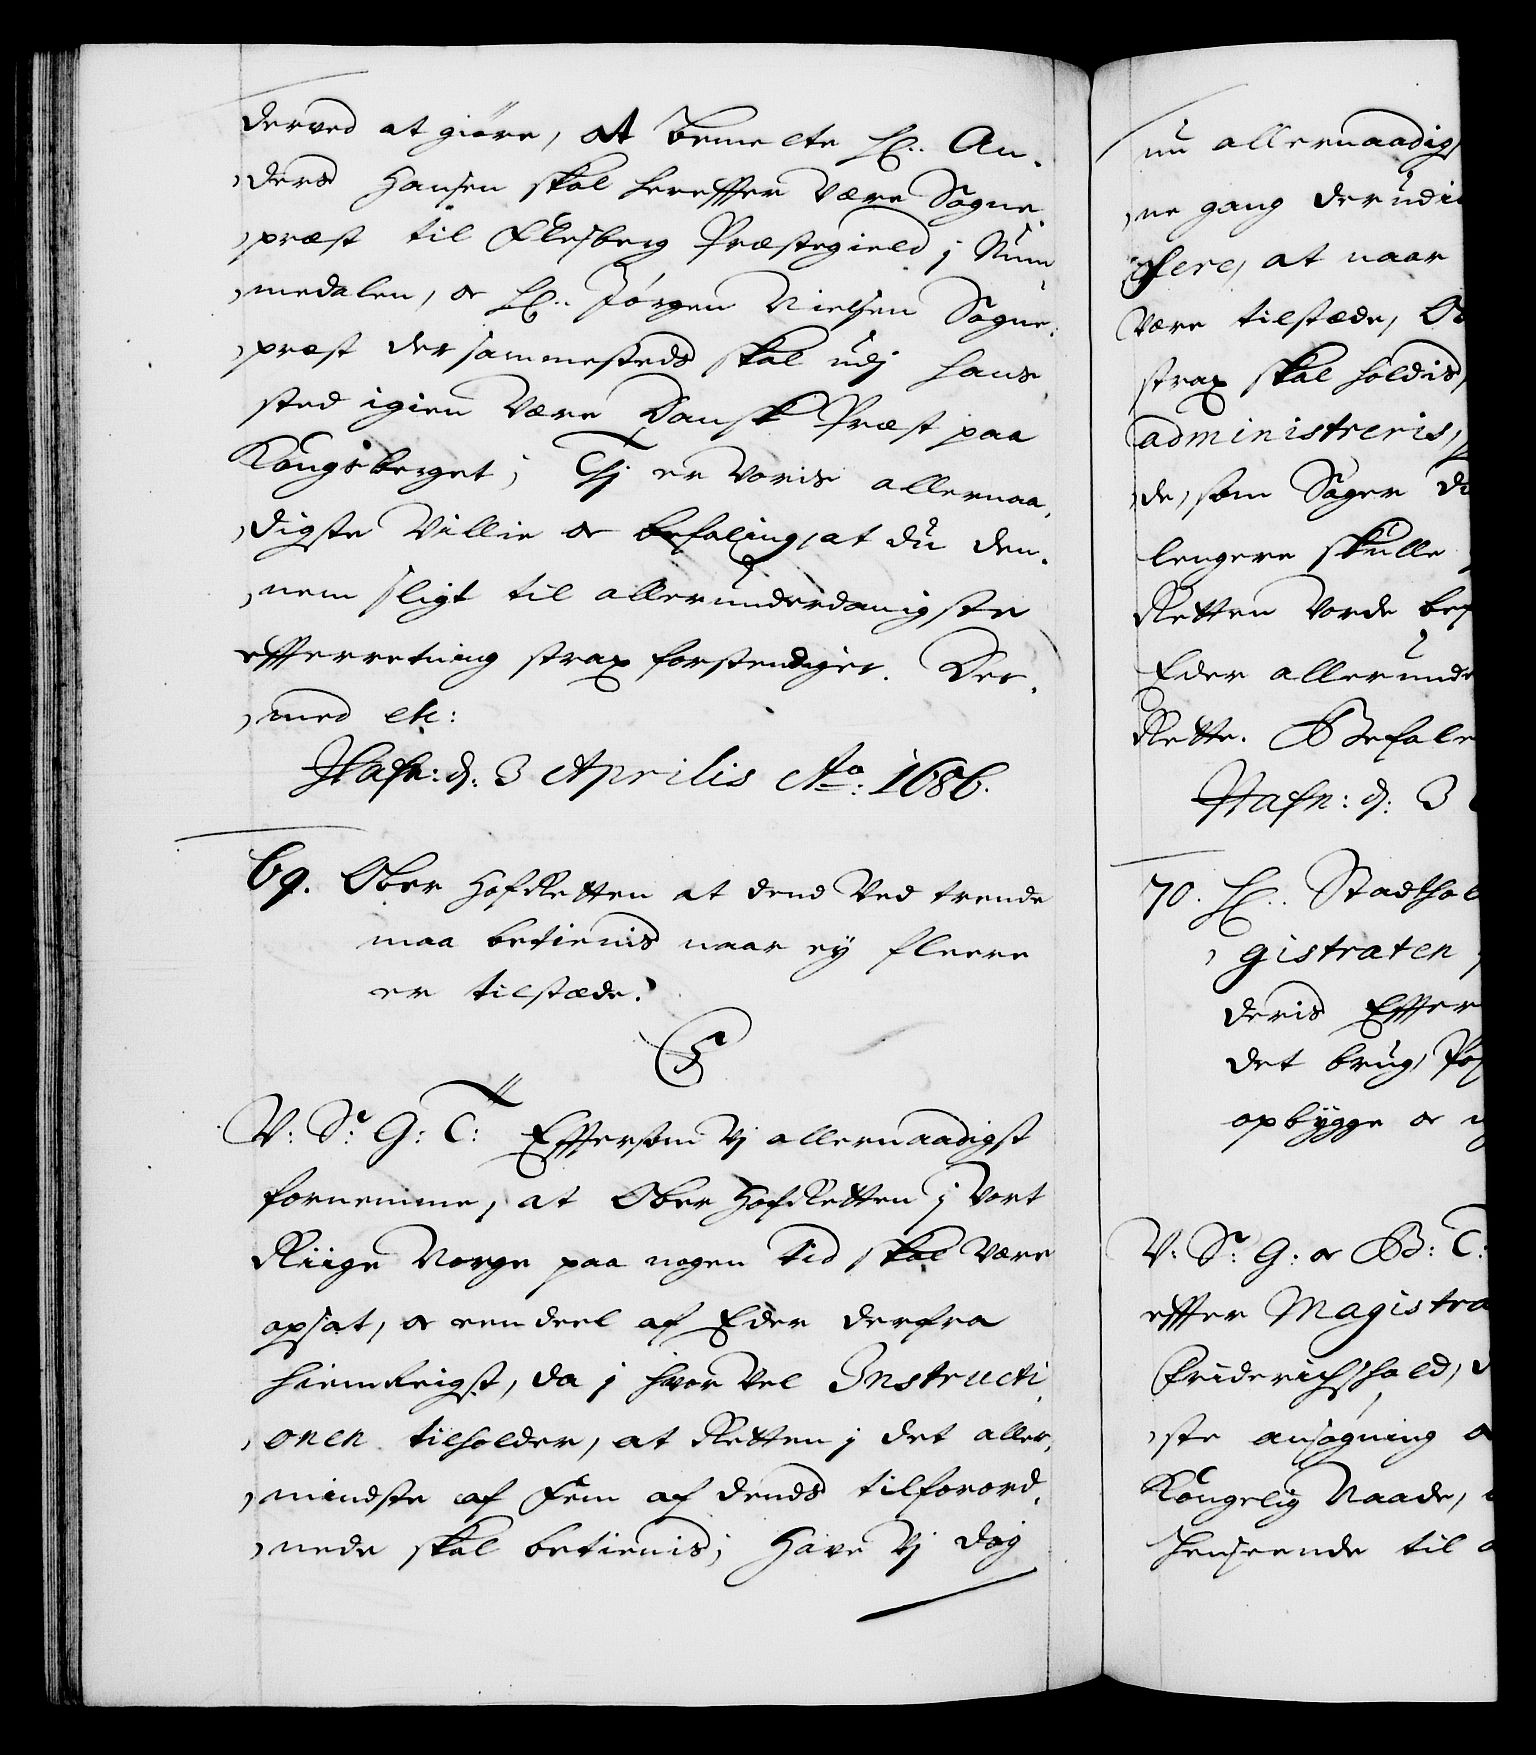 derved at giöre, At bemelte Hr. An-
ders Hansen skal hereffter være Sogne-
præst til Flesberg Præstegield j Num-
medalen, oc Hr. Jørgen Nielsen Sogne-
præst dersammesteds skal udj hans
sted igien være Dansk Præst paa
Kongsberget; Thj er Voris allernaa-
digste Villie oc befaling, at du den-
nem sligt til allerunderdanigste
effterretning strax forstendiger. Der-
med etc:
Hafn: d: 3 Aprilis Ao: 1686.
69. Ober HofRetten at dend Ved trende
maa betienis naar ey fleere
er tilstæde.
C5
V: S: G: T: Efftersom Vj allernaadigst
fornemme, at Ober HofRetten j Vort
Riige Norge paa nogen tid skal være
opsat, oc een deel af Eder derfra
hiemReigst, da j hvor vel Instructi-
onen tilholder, at Retten j det aller-
mindste af Fem af dends tilforord-
nede skal betienis; Have Vj dog
nu allernaadigs
ne gang derudi
sere, at naar
være tilstæde, O
strax skal holdis,
administreris,
de, som Sager d
lengere skulle
Retten vorde bef
Eder allerunde
Rette. Befale
Hafn: d: 3
70. Hr. Stadthol
gistraten
deris Effter
det brug, Po
opbygge oc
V: S: G: oc B: T:
effter Magistra
Friderichshald,
ste ansøgning
Kongelig Naade,
henseende til